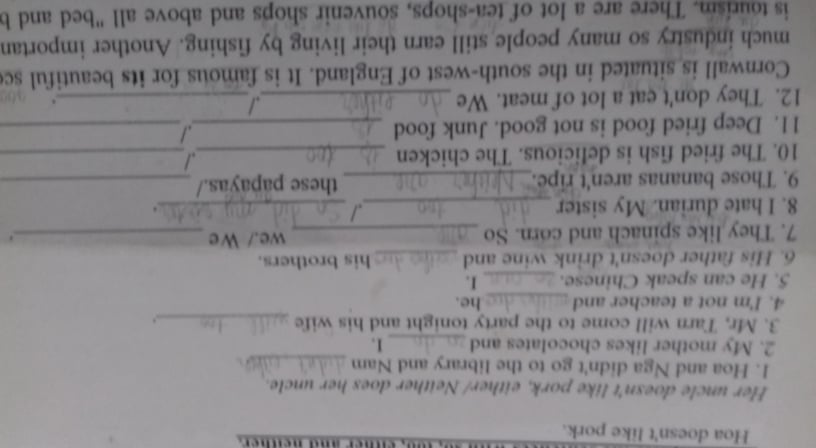 so, too, either and neither.
Hoa doesn't like pork.
Her uncle doesn't like pork, either/ Neither does her uncle.
1. Hoa and Nga didn't go to the library and Nam didn't either
2. My mother likes chocolates and so do I.
3. Mr, Tarn will come to the party tonight and his wife will too.
4. I'm not a teacher and he.
5. He can speak Chinese. so can I.
6. His father doesn't drink wine and his brothers.
7. They like spinach and corn. So we./ We .
8. I hate durian. My sister did too ./ So did my sister.
9. Those bananas aren't ripe. Neither are these papayas./
10. The fried fish is delicious. The chicken is too ./
11. Deep fried food is not good. Junk food is ./
12. They don't eat a lot of meat. We do either ./ .
Cornwall is situated in the south-west of England. It is famous for its beautiful sc
much industry so many people still earn their living by fishing. Another importan
is tourism. There are a lot of tea-shops, souvenir shops and above all "bed and b